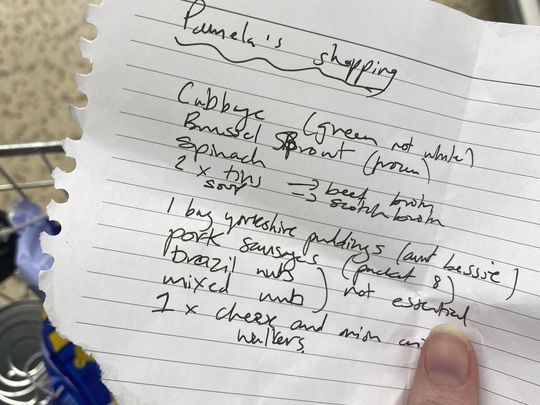 Pamela's shopping
Cabbage (green not white)
Brussel Sprout (frozen)
Spinach
2 x tins → beef broth
soup → scotch broth
1 bag yorkshire puddings (aunt bessie)
pork sausages (packet 8)
brazil nuts
mixed nuts ) not essential
1 x cheese and onion
walkers